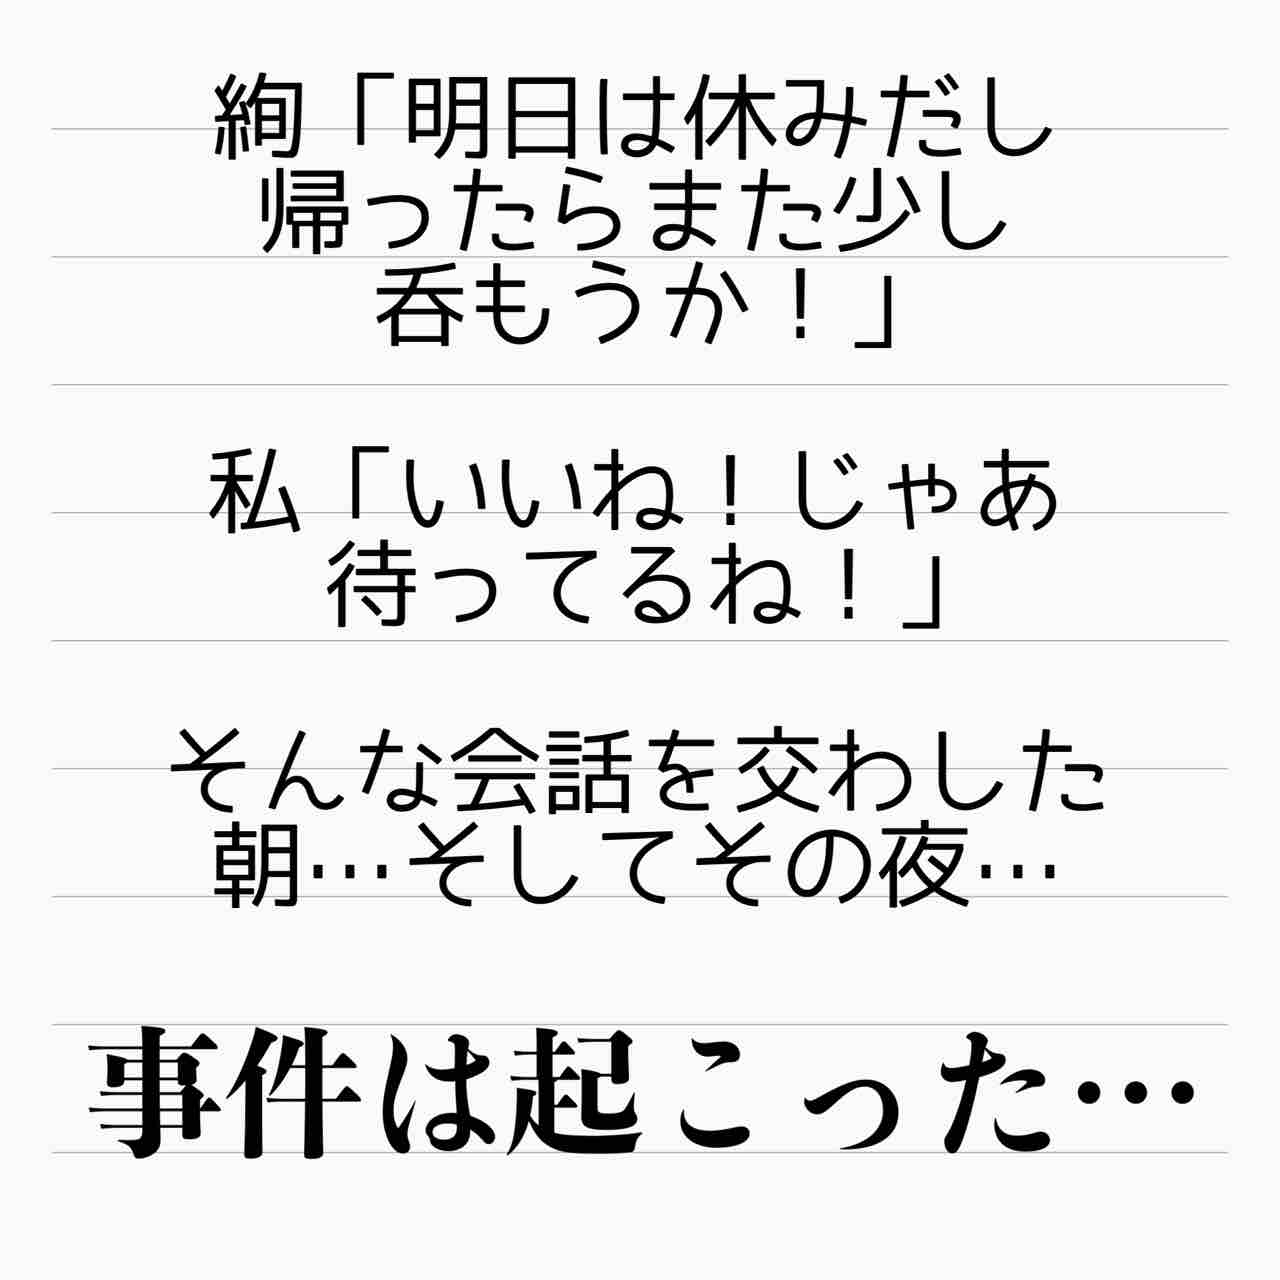 絢「明日は休みだし
帰ったらまた少し
呑もうか！」
私「いいね！じゃあ
待ってるね！」
そんな会話を交わした
朝…そしてその夜…
事件は起こった…